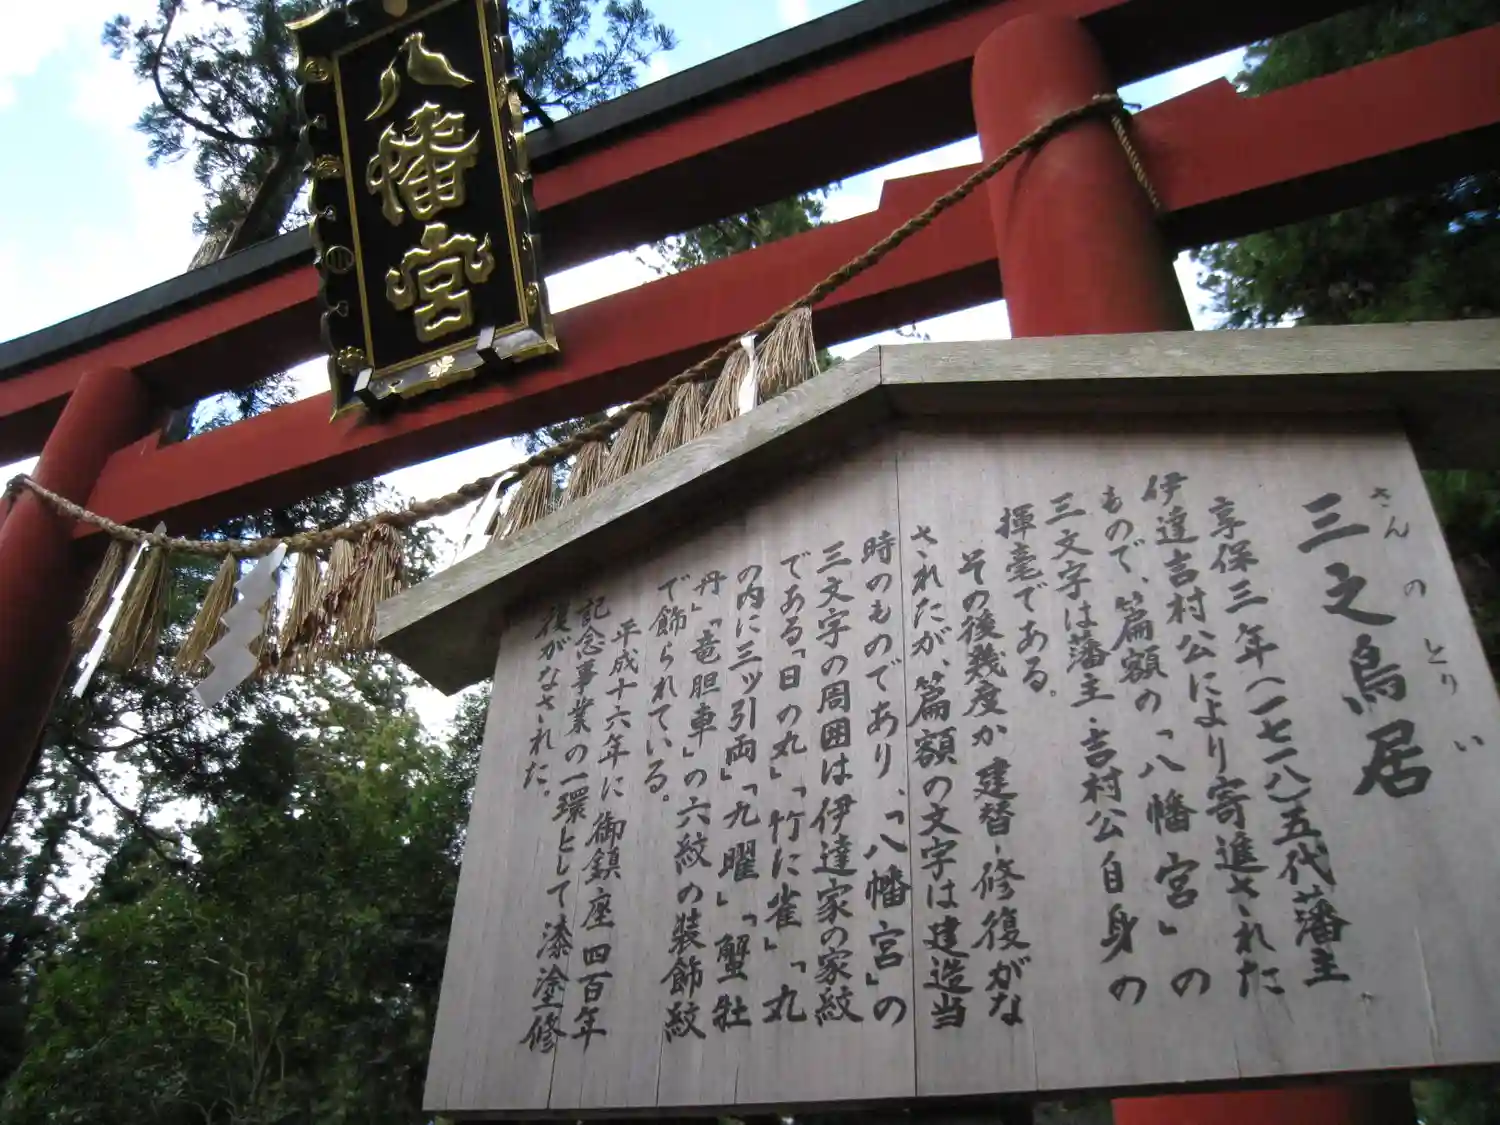 八幡宮
さんのとりい
三之鳥居
享保三年(一七一八)五代藩主
伊達吉村公により寄進された
もので、篇額の「八幡宮」の
三文字は藩主・吉村公自身の
揮毫である。
その後幾度か建替・修復がな
されたが、篇額の文字は建造当
時のものであり、「八幡宮」の
三文字の周囲は伊達家の家紋
である「日の丸」「竹に雀」「丸
の内に三ッ引両」「九曜」「蟹牡
丹」「竜胆車」の六紋の装飾紋
で飾られている。
平成十六年に御鎮座四百年
記念事業の一環として漆塗修
復がなされた。